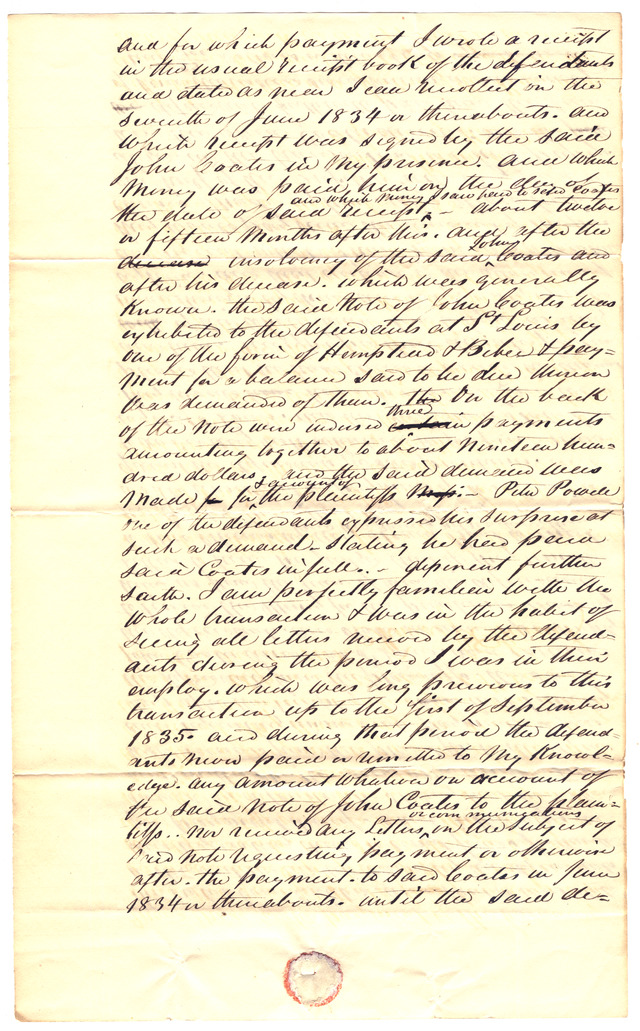 and for which payment I wrote a receipt
in the usual receipt book of the defendants
and dated as near I can recollect on the
seventh of June 1834 or thereabouts. and
which receipt was signed by the said
John Coates in my presence. and which
money was paid him on the
and which money I saw paid to said Coates
the date of said receipt, - about twelve
or fifteen months after this. and after the
John
decease insolvency of the said Coates and
after his decease. which was generally
known. the said note of John Coates was
exhibited to the defendants at St Louis by
one of the firm of Hempstead & Beber & pay-
ment for a balance said to be due thereon
was demanded of them. the On the back
three
of the note were indorsed certain payments
amounting together to about nineteen hun-
dred dollars, and the said demand was
& account of
made for the plaintiffs - Peter Powell
one of the defendants expressed his surprise at
such a demand - stating he had paid
said Coates in full. - deponent further
saith. I am perfectly familiar with the
whole transaction & was in the habit of
seeing all letters received by the defend-
ants during the period I was in their
employ. which was long previous to this
transaction up to the first of September
1835. and during that period the defend-
ants never paid or remitted to my knowl-
edge. any amount whatever on account of
the said note of John Coates to the plain-
or communications
tiffs. nor received any letters on the subject of
said note requesting payment or otherwise
after. the payment. to said Coates in June
1834 or thereabouts. until the said de-